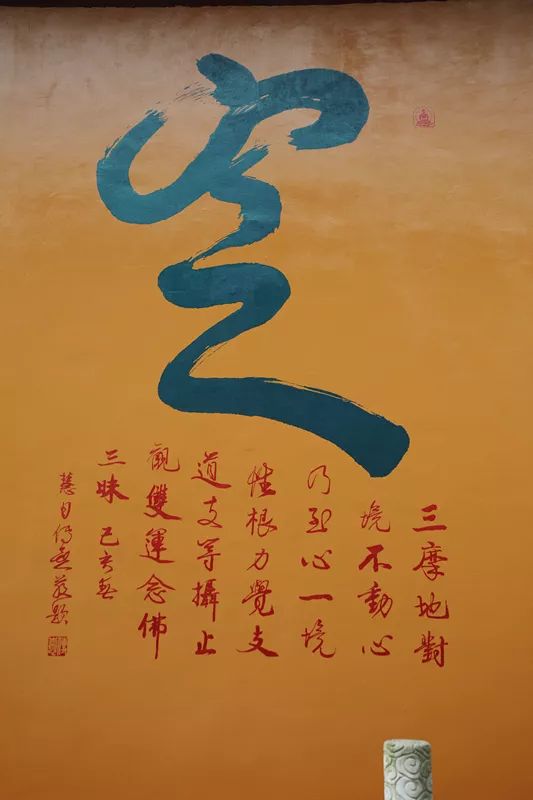 空
三摩地對
境不動心
乃至心一境
性根力覺支
道支等攝止
觀雙運念佛
三昧己亥
慧日
題